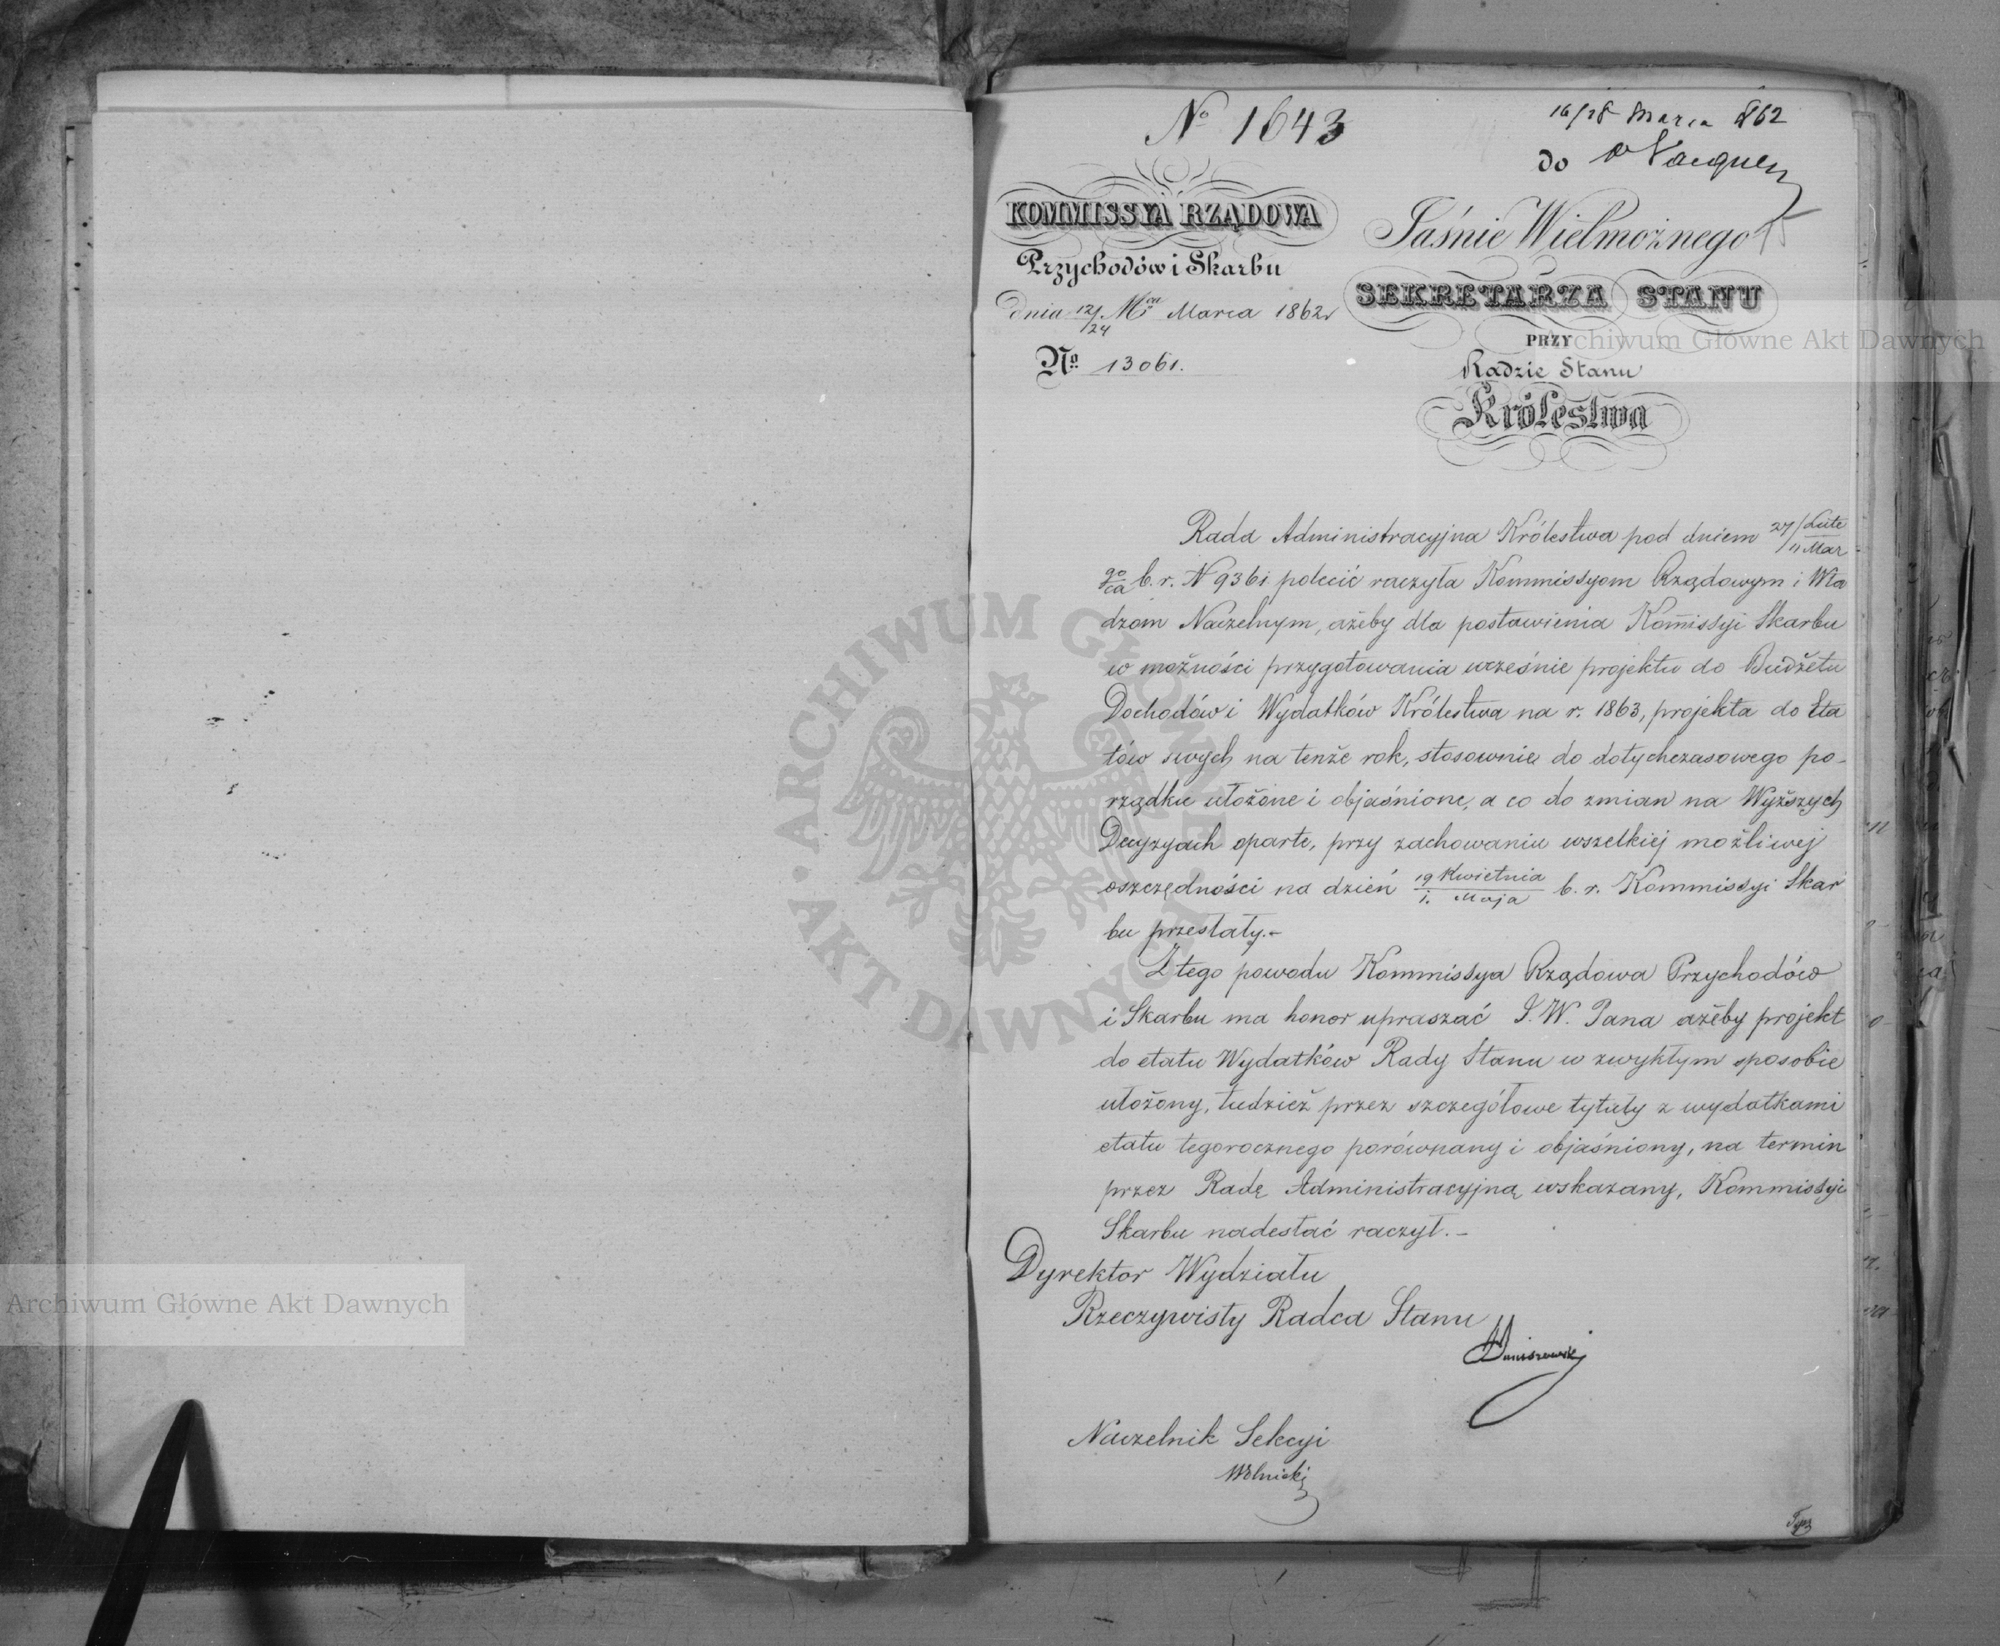 № 1643
16/28 Marca 862
do
KOMMISSYA RZĄDOWA
Przychodów i Skarbu
dnia 12/24 M^ca Marca 1862 r
№ 13061.
Jaśnie Wielmożnego
SEKRETARZA STANU
PRZY
Radzie Stanu
Królestwa
Rada Administracyjna Królestwa pod dniem 27/Lute 11 Mar
go/ca b. r. N 9361 polecić raczyła Kommissyom Rządowym i Wła
dzom Naczelnym, ażeby dla postawienia Kom̄issyi Skarbu
w możności przygotowania wcześnie projektu do Budżetu
Dochodów i Wydatków Królestwa na r. 1863, projekta do Eta
tów swych na tenże rok, stosownie do dotychczasowego po-
rządku ułożone i objaśnione, a co do zmian na Wyższych
Decyzyach oparte, przy zachowaniu wszelkiej możliwej
oszczędności na dzień 19 Kwietnia/1. Maja b. r. Kommissyi Skar
bu przesłały.-
Z tego powodu Kommissya Rządowa Przychodów
i Skarbu ma honor upraszać J. W. Pana ażeby projekt
do etatu Wydatków Rady Stanu w zwykłym sposobie
ułożony, tudzież przez szczegółowe tytuły z wydatkami
etatu tegorocznego porównany i objaśniony, na termin
przez Radę Administracyjną wskazany, Kommissyi
Skarbu nadesłać raczył.-
Dyrektor Wydziału
Rzeczywisty Radca Stanu
Naczelnik Sekcyi
Wolnicki
Archiwum Główne Akt Dawnych
Archiwum Główne Akt Dawnych
ARCHIWUM GŁÓWNE AKT DAWNYCH